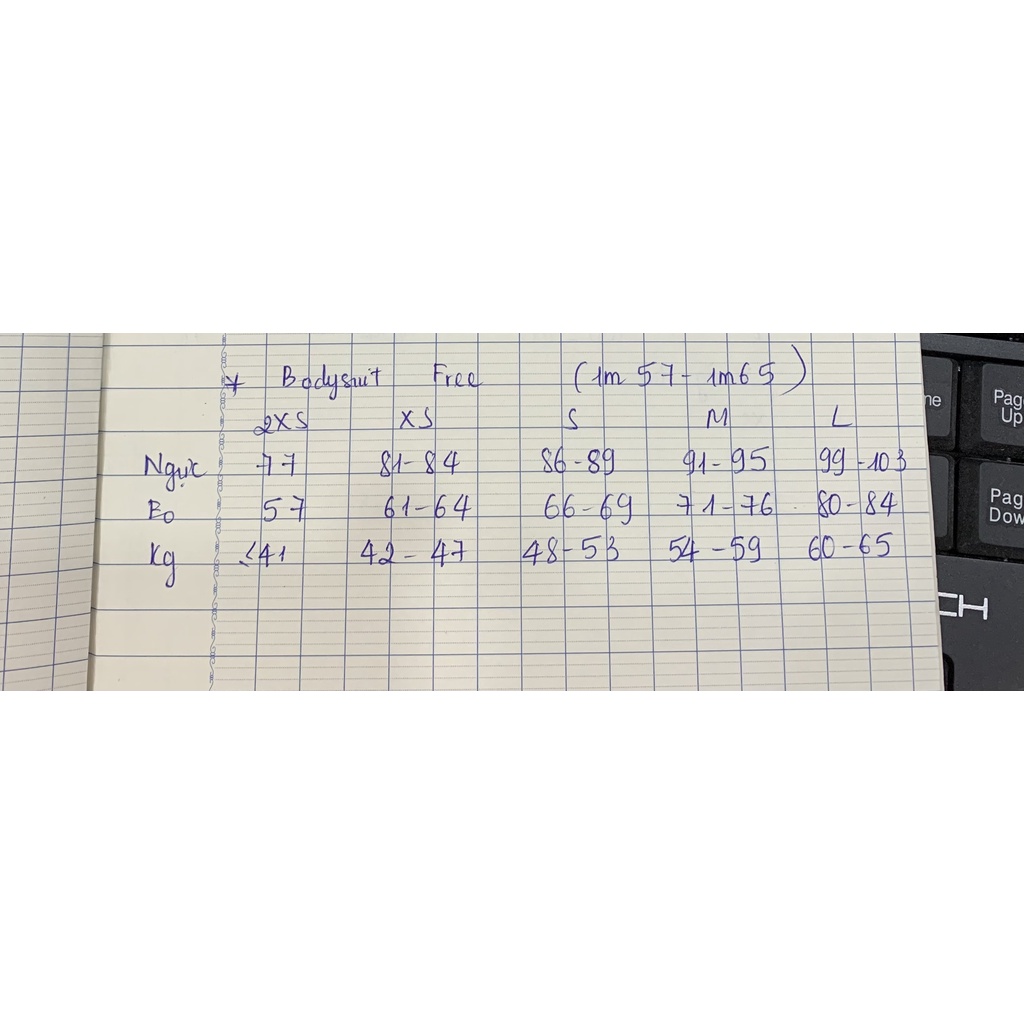 * Bodysuit Free (1m 57 - 1m65)
2XS XS S M L
Ngực 77 81-84 86-89 91-95 99-103
Eo 57 61-64 66-69 71-76 80-84
Kg ≤41 42-47 48-53 54-59 60-65
me
Page Up
Pag Dow
CH